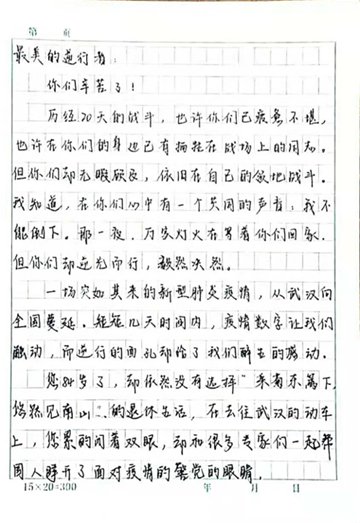 第 页
最美的逆行者:
你们辛苦了!
历经20天的战斗,也许你们已疲惫不堪,
也许在你们的身边已有牺牲在战场上的同志。
但你们却无暇顾及,依旧在自己的领地战斗。
我知道,在你们心中有一个共同的声音:我不
能倒下。那一夜,万家灯火在等着你们回家,
但你们却逆光而行,毅然决然。
一场突如其来的新型肺炎疫情,从武汉向
全国蔓延。短短几天时间内,疫情数字让我们
触动,而逆行的面孔却给了我们醉去的感动。
您84岁了,却依然没有选择"采菊东篱下,
悠然见南山"的退休生活,在去往武汉的动车
上,您累的闭着双眼,却和很多专家们一起帮
国人睁开了面对疫情的警觉的眼睛。
15×20=300 年 月 日